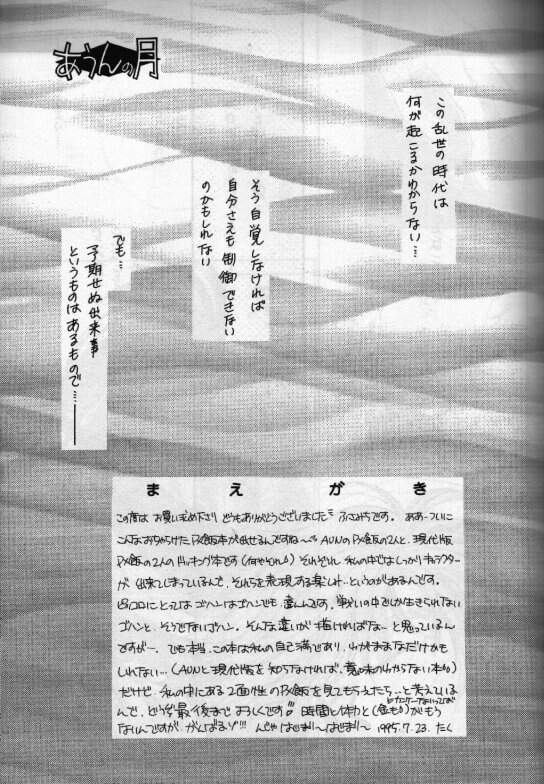 あうんの月
この乱世の時代は
何が起こるかわからない…
そう自覚しなければ
自分さえも制御できない
のかもしれない
でも…
予期せぬ出来事
というものはあるもので…――
まえがき
この度は お買い求め下さり どうもありがとうございました ふさみちです。 ああーついに
こんなおちゃらけたP×飯本が出せるんですね〜 AUNのP×飯の2人と、現代版
P×飯の2人のドッキング本です(何やそれ) それぞれ 私の中ではしっかりキャラクター
が 出来てしまっているんで、それらを表現する楽しみ…というのがあるんです。
ピッコロにとっては ゴハンはゴハンでも 違うんです。 戦いの中でしか生きられない
ゴハンと、そうでないゴハン。 そんな違いが 描ければな… と思っているん
ですが…。 でも本当、この本は私の自己満であり、わがままなだけかも
しれない…(AUNと現代版を知らなければ、意味のわからない本)
だけど 私の中にある2面性のP×飯を見てもらえたら…と考えている
んで、どうぞ最後まで よろしくです!! 時間と体力と(金も)がもう
ないんですが がんばるゾ!!! んじゃ はじまり〜はじまり〜 1995.7.23.